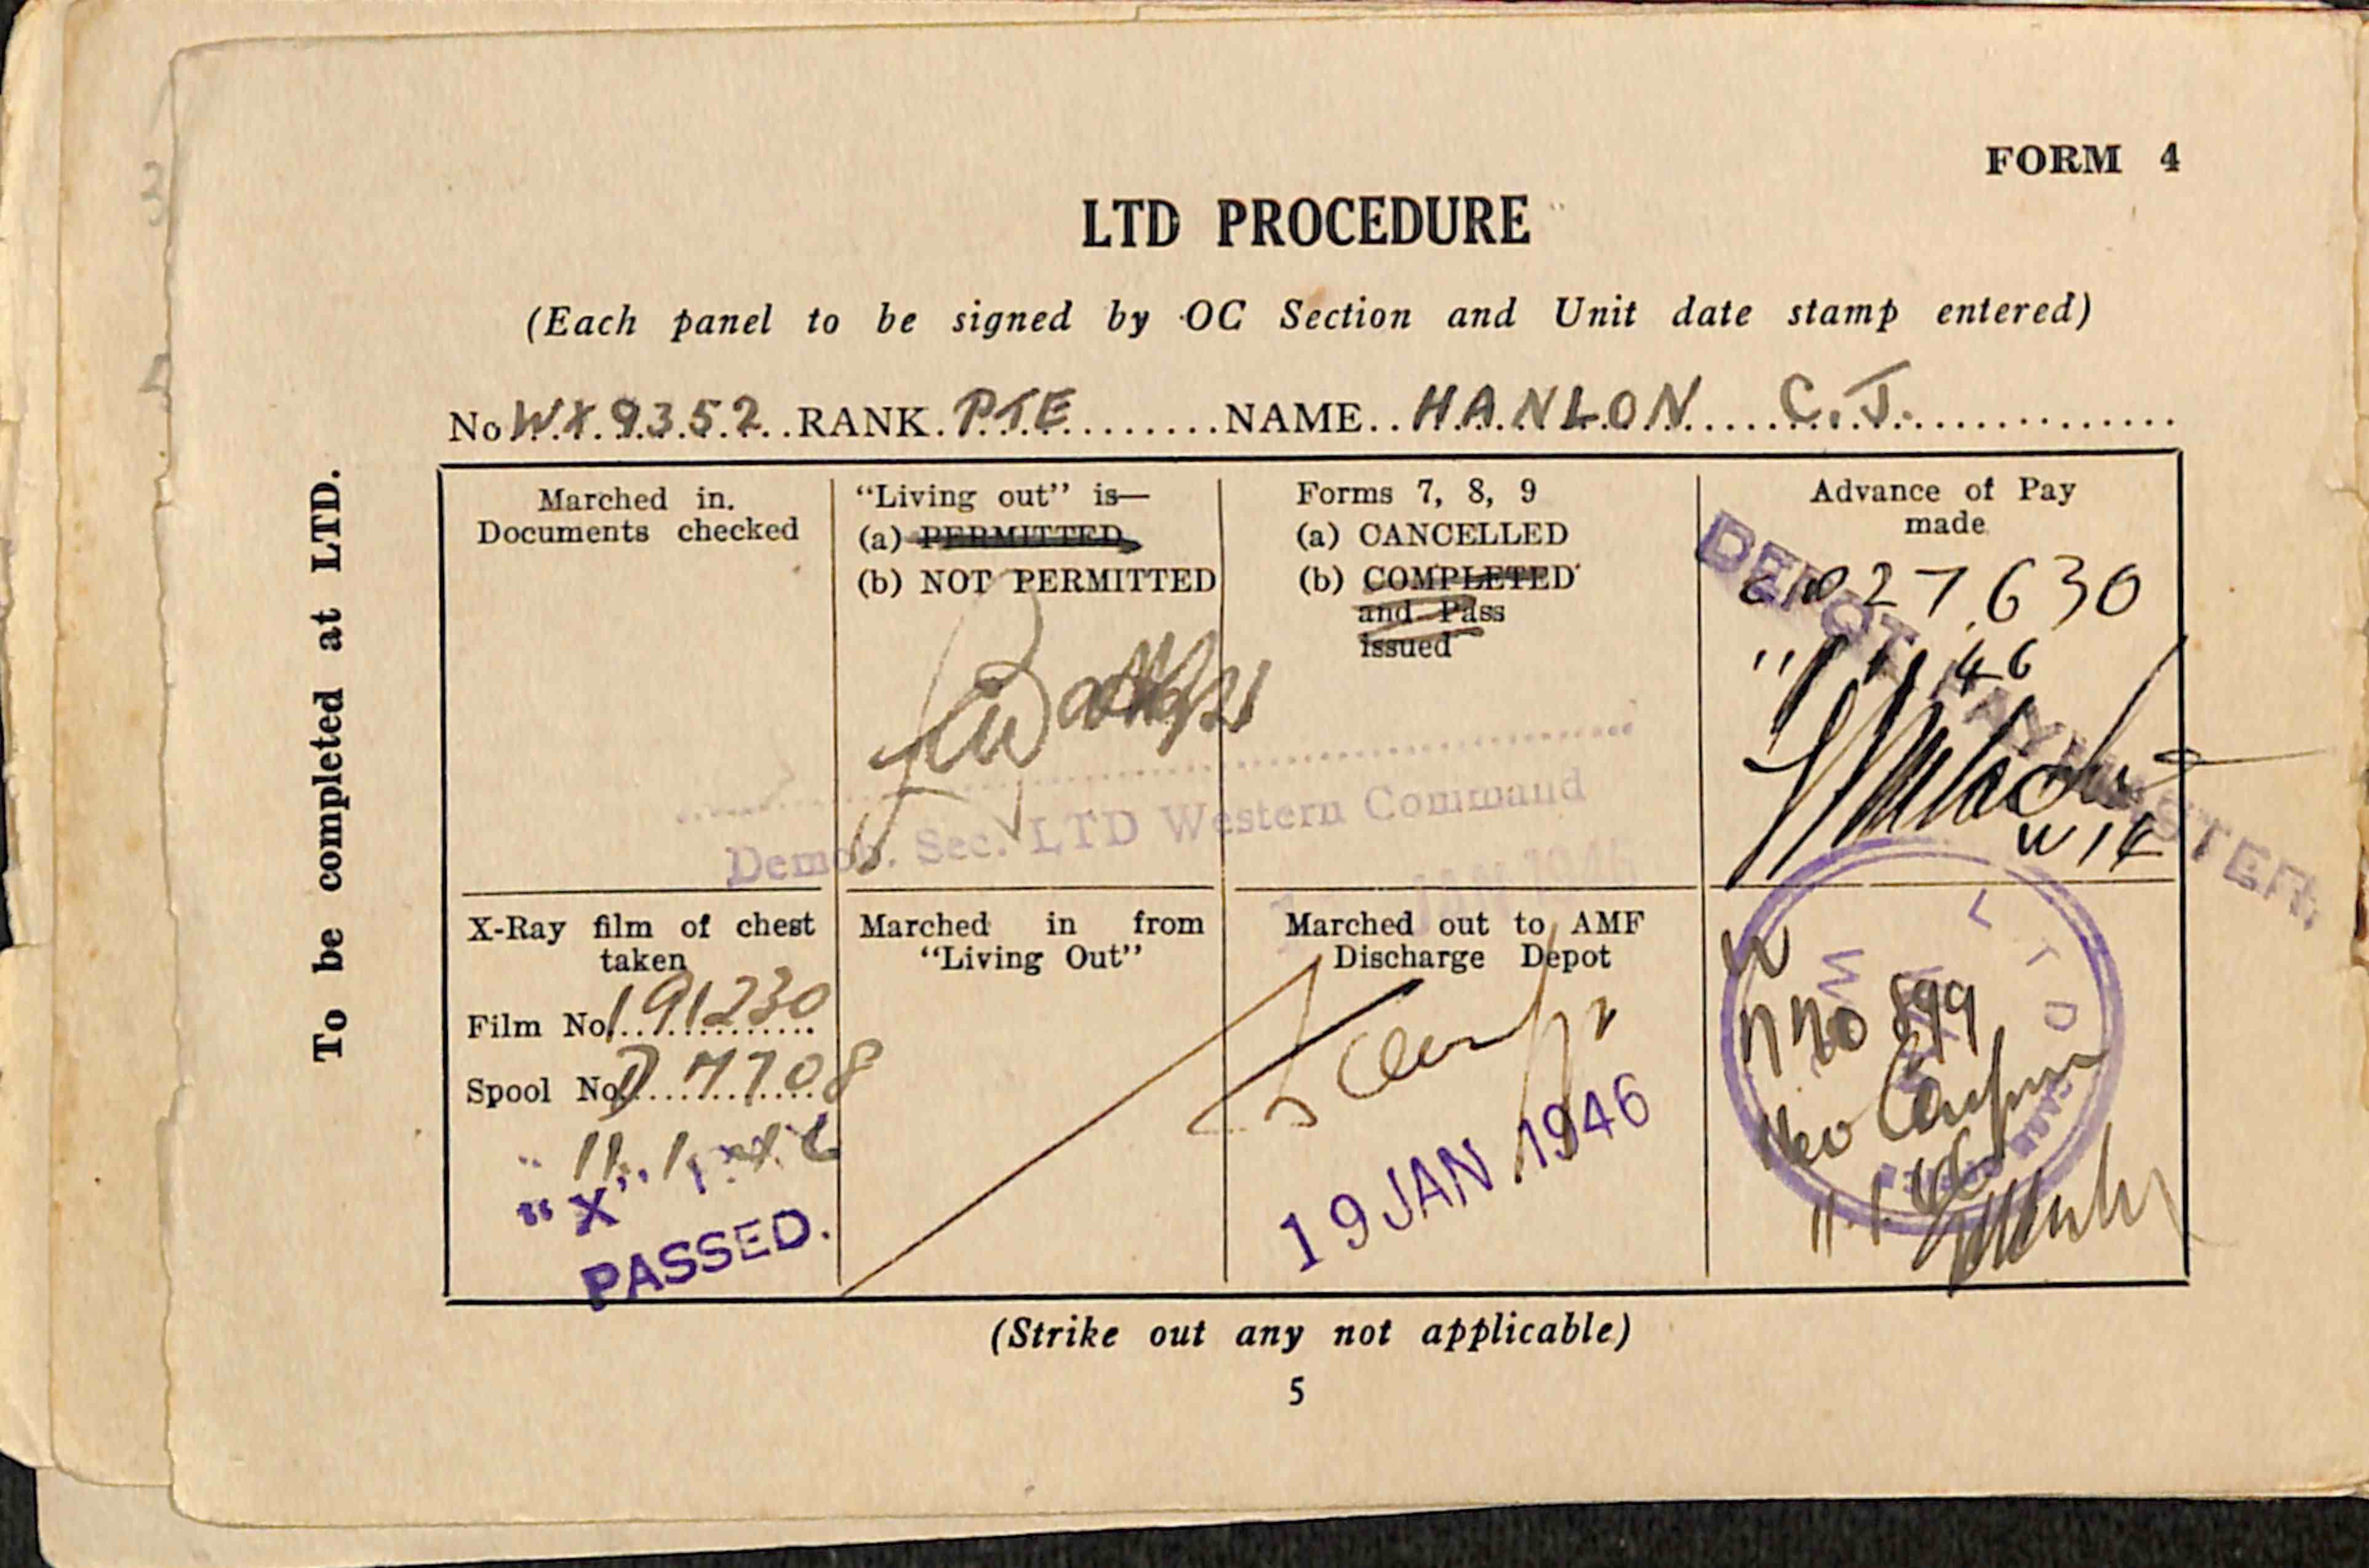 FORM 4
LTD PROCEDURE
(Each panel to be signed by OC Section and Unit date stamp entered)
No WX9352 RANK PTE NAME HANLON C.J.
To be completed at LTD.
Marched in.
Documents checked
"Living out" is—
(a) PERMITTED
(b) NOT PERMITTED
Forms 7, 8, 9
(a) CANCELLED
(b) COMPLETED
and Pass
issued
Advance of Pay
made
27630
DEPOT PAYMASTER.
Demob. Sec. LTD Western Command
JAN 1946
X-Ray film of chest
taken
Film No. 191230
Spool No. D7708
"X"
PASSED.
Marched in from
"Living Out"
Marched out to AMF
Discharge Depot
19 JAN 1946
LTD
899
11.1.46
(Strike out any not applicable)
5